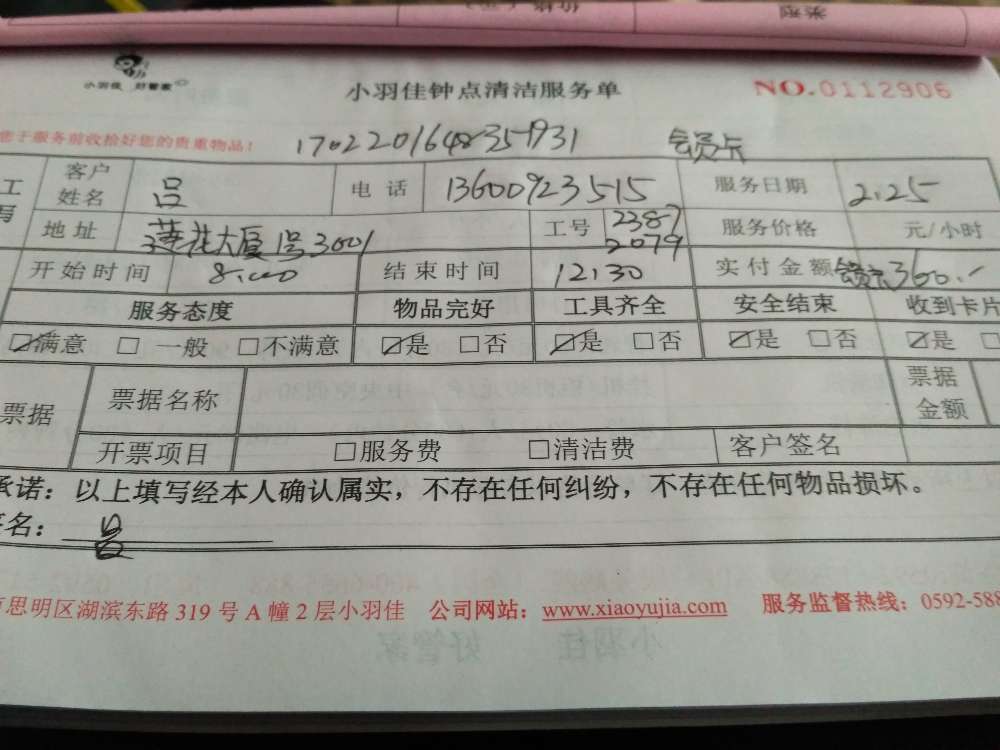 小羽佳 好管家
小羽佳钟点清洁服务单
NO.0112906
您于服务前收拾好您的贵重物品!
会员卡
工 客户姓名 吕 电话 13600923515 服务日期 2.25
写 地址 莲花大厦1号3601 工号 2387 2079 服务价格 元/小时
开始时间 8:00 结束时间 12:30 实付金额 会员卡360.-
服务态度 物品完好 工具齐全 安全结束 收到卡片
☑满意 □一般 □不满意 ☑是 □否 ☑是 □否 ☑是 □否 ☑是 □
票据 票据名称 票据金额
开票项目 □服务费 □清洁费 客户签名
承诺：以上填写经本人确认属实，不存在任何纠纷，不存在任何物品损坏。
签名：吕
思明区湖滨东路 319 号 A 幢 2 层小羽佳 公司网站：www.xiaoyujia.com 服务监督热线：0592-588